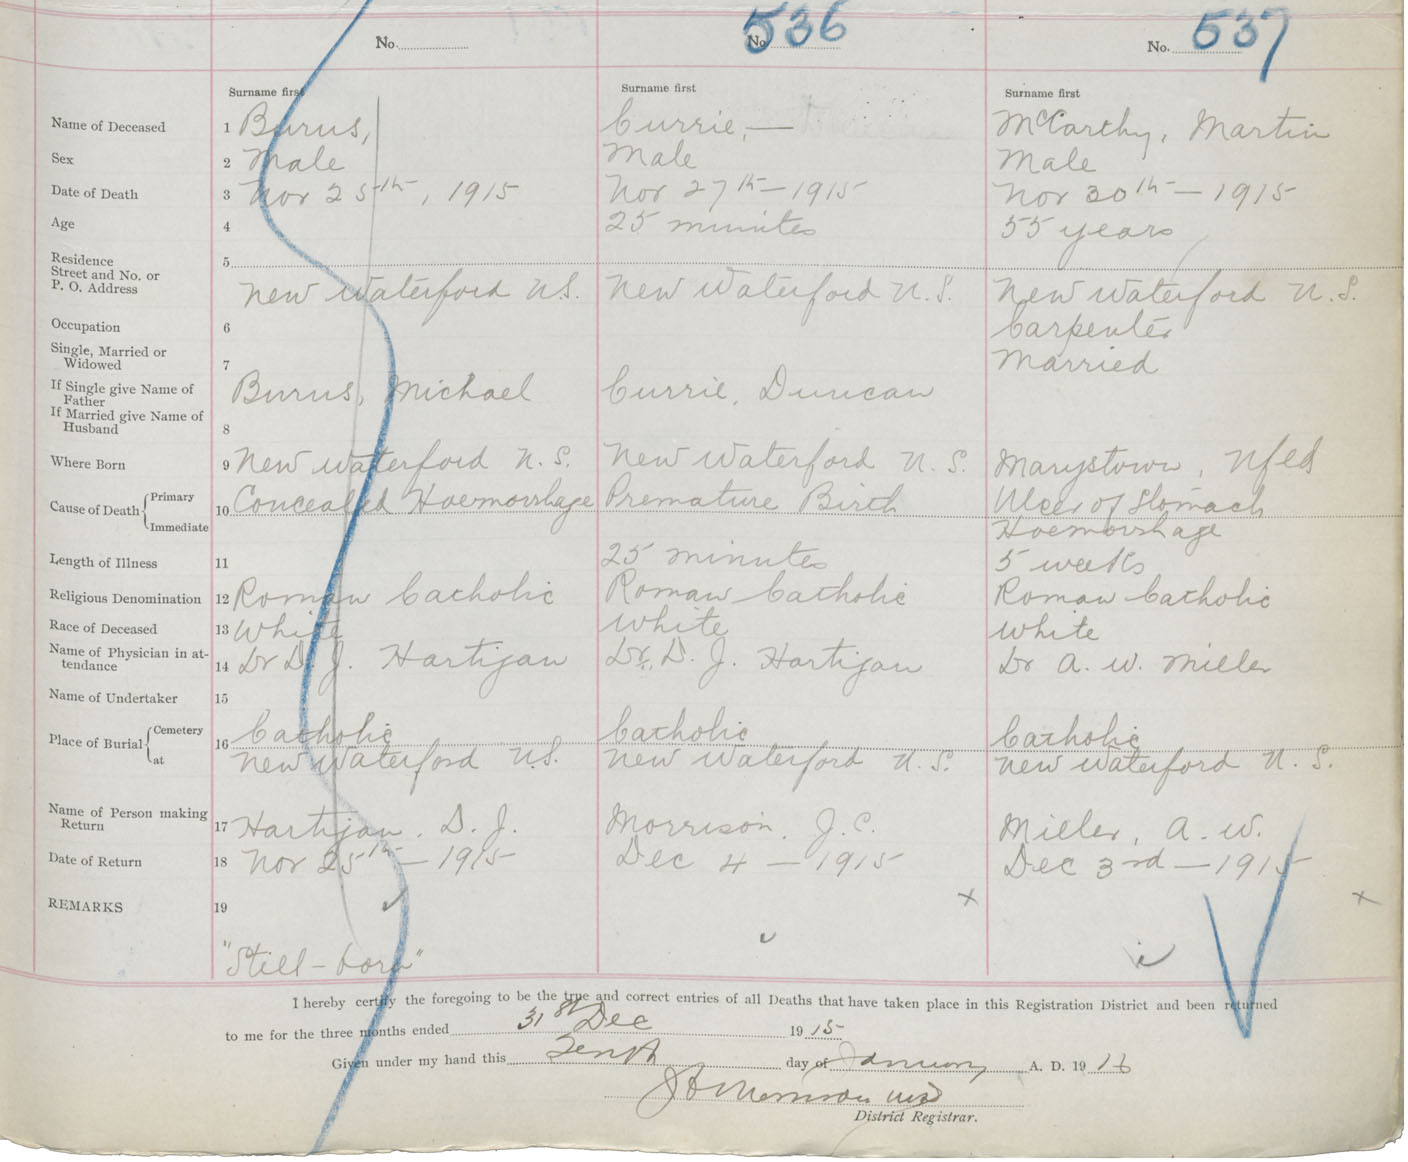 No. No. 536 No. 537
Surname first Surname first Surname first
Name of Deceased 1 Burus, Currie, — McCarthy, Martin
Sex 2 Male Male Male
Date of Death 3 Nov 25th, 1915 Nov 27th — 1915 Nov 30th — 1915
Age 4 25 minutes 55 years
Residence
Street and No. or 5
P. O. Address New Waterford N.S. New Waterford N.S. New Waterford N.S.
Occupation 6 Carpenter
Single, Married or
Widowed 7 Married
If Single give Name of
Father Burus, Michael Currie, Duncan
If Married give Name of
Husband 8
Where Born 9 New Waterford N.S. New Waterford N.S. Marystown, Nfld
Cause of Death { Primary 10 Concealed Haemorrhage Premature Birth Ulcer of Stomach
Immediate Haemorrhage
Length of Illness 11 25 minutes 5 weeks
Religious Denomination 12 Roman Catholic Roman Catholic Roman Catholic
Race of Deceased 13 White White White
Name of Physician in at-
tendance 14 Dr D. J. Hartigan Dr. D. J. Hartigan Dr A. W. Miller
Name of Undertaker 15
Place of Burial { Cemetery 16 Catholic Catholic Catholic
at New Waterford N.S. New Waterford N.S. New Waterford N.S.
Name of Person making
Return 17 Hartigan, D. J. Morrison, J.C. Miller, A. W.
Date of Return 18 Nov 25th — 1915 Dec 4 — 1915 Dec 3rd — 1915
REMARKS 19
"Still-born"
I hereby certify the foregoing to be the true and correct entries of all Deaths that have taken place in this Registration District and been returned
to me for the three months ended 31st Dec 1915
Given under my hand this Tenth day of January A. D. 1916
Morrison MD
District Registrar.